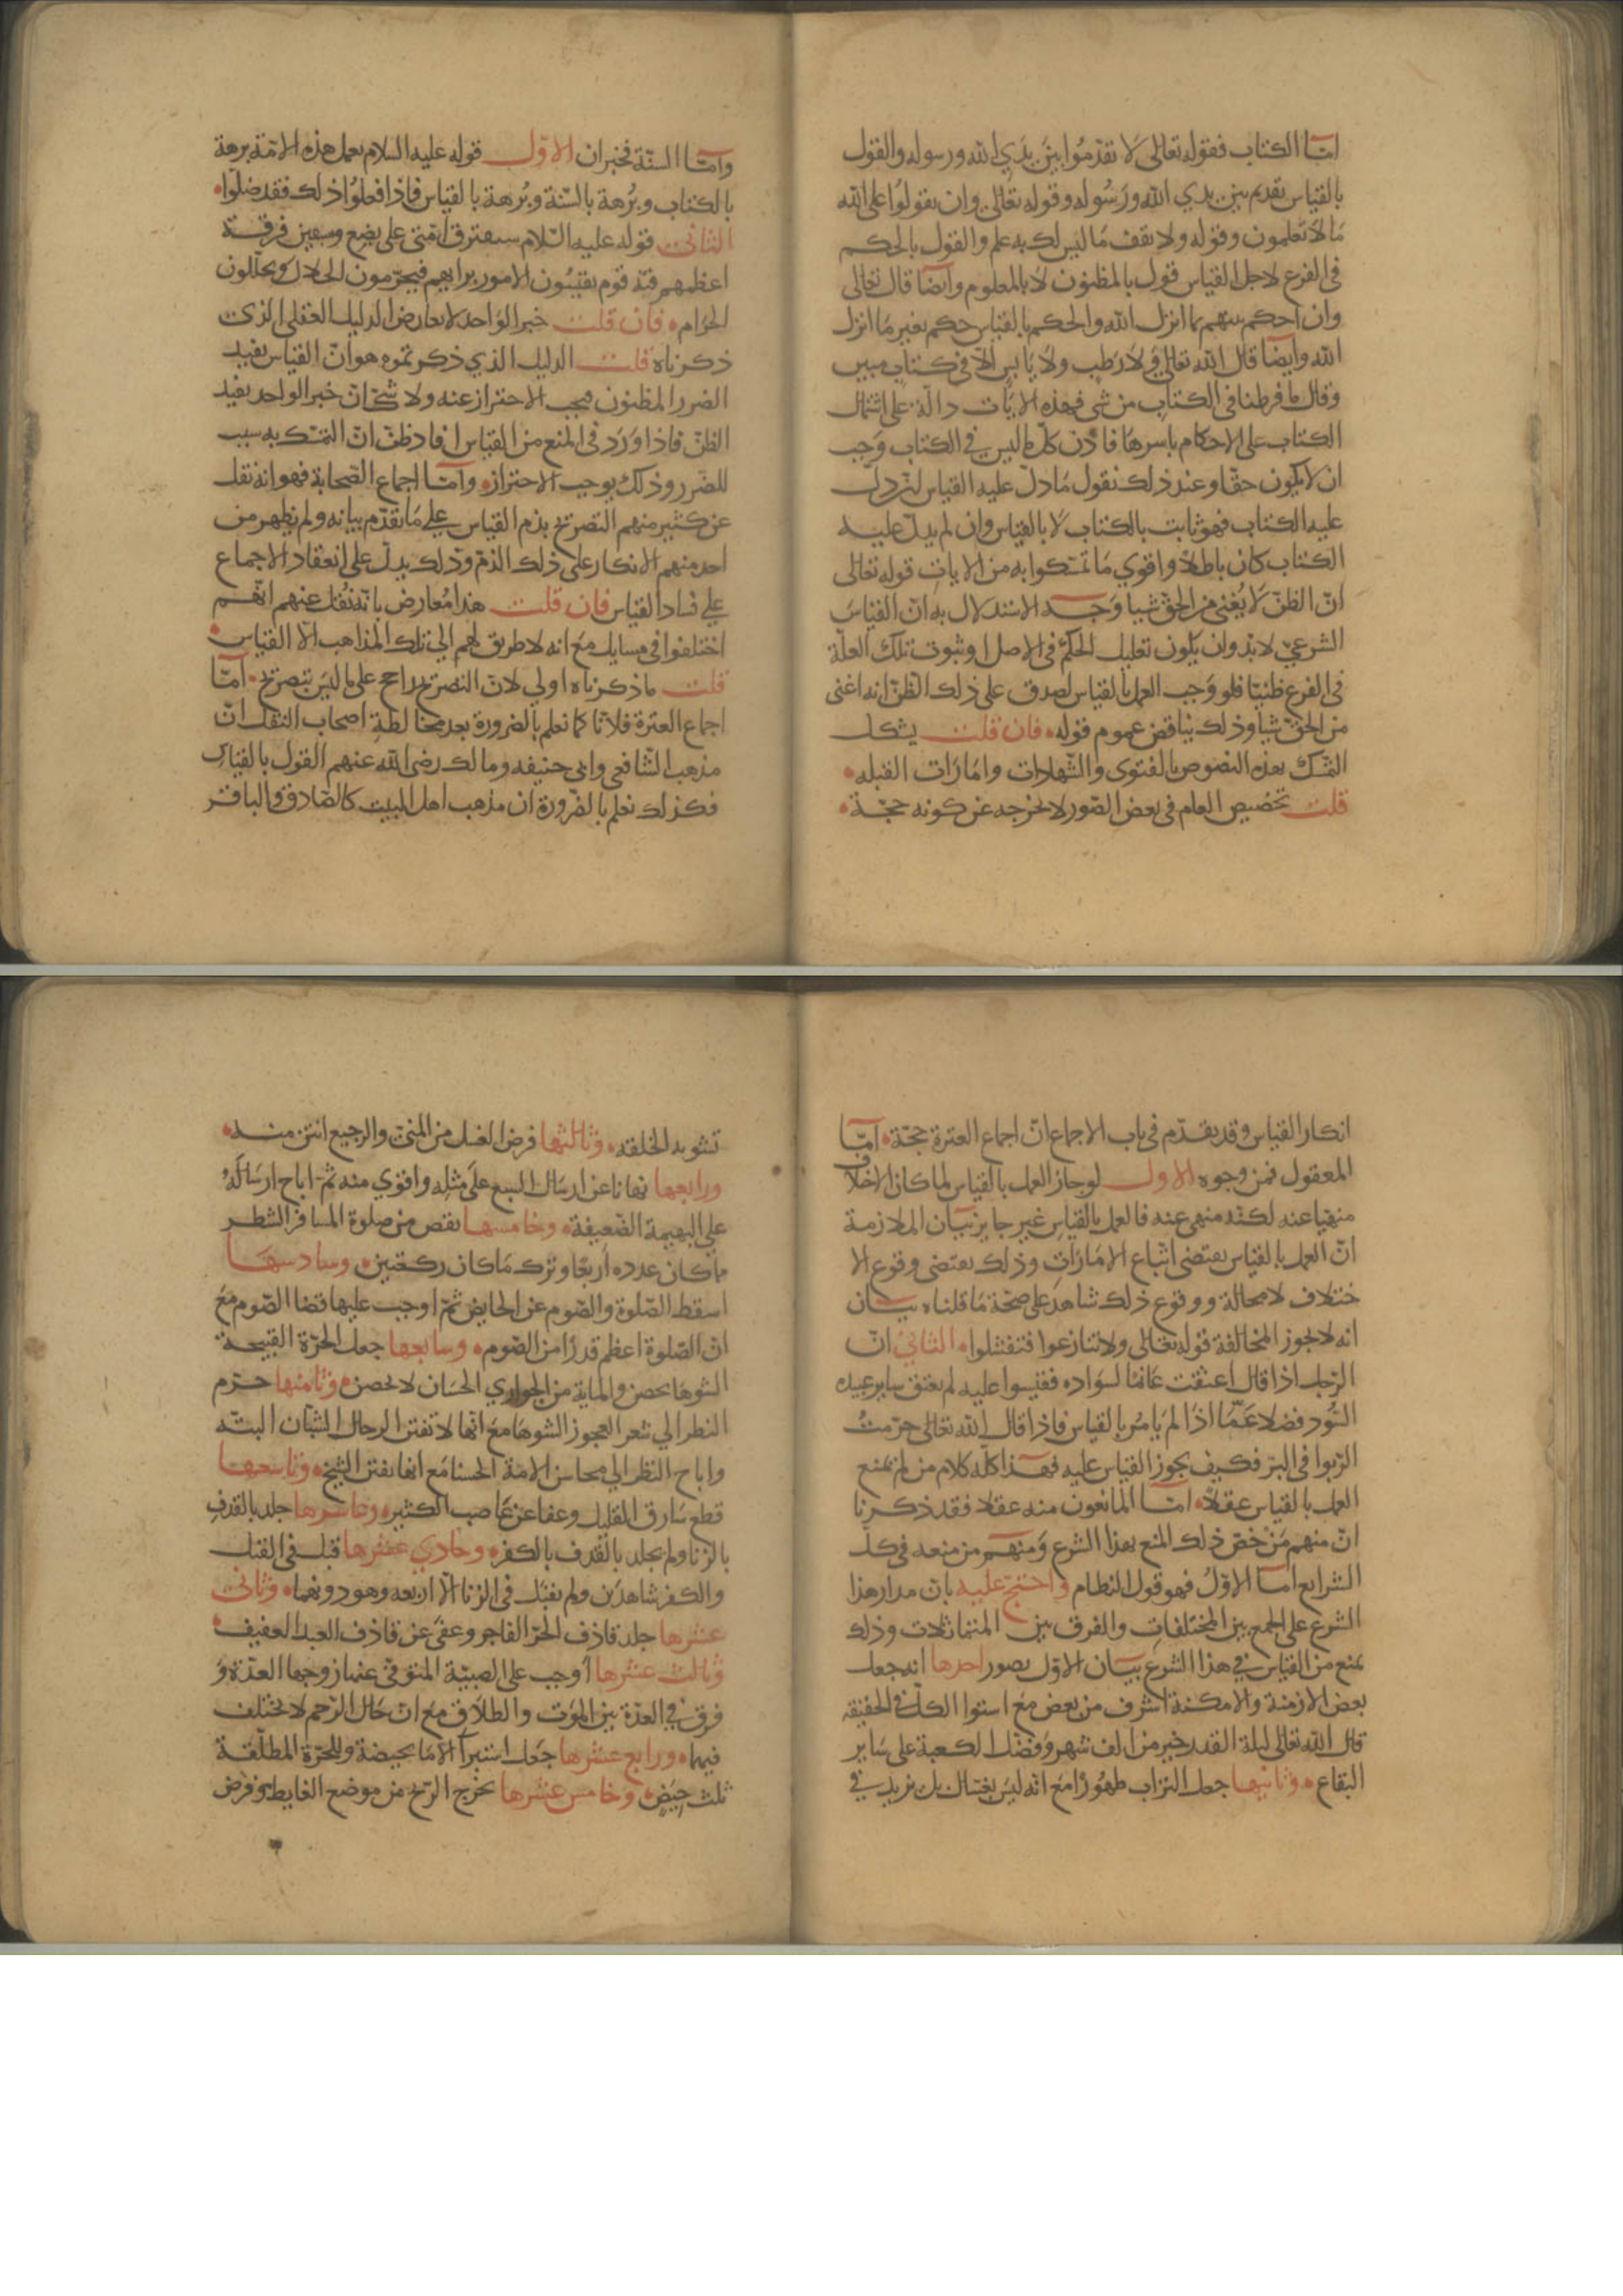 امّا الكتاب فقوله تعالى لا تقدّموا بين يدي الله ورسوله والقول
بالقياس تقديم بين يدي الله ورسوله وقوله تعالى وان تقولوا على الله
ما لا تعلمون وقوله ولا تقف ما ليس لك به علم والقول بالحكم
فى الفرع لاجل القياس قول بالمظنون لا بالمعلوم وايضا قال تعالى
وان احكم بينهم بما انزل الله والحكم بالقياس حكم بغير ما انزل
الله وايضا قال الله تعالى ولا رطب ولا يابس الا فى كتاب مبين
وقال ما فرطنا فى الكتاب من شى فهذه الايات دالة على اشتمال
الكتاب على الاحكام باسرها فاذن كلّ ما ليس في الكتاب وجب
ان لا يكون حقّا وعند ذلك نقول ما دلّ عليه القياس ان دل
عليه الكتاب فهو ثابت بالكتاب لا بالقياس وان لم يدلّ عليه
الكتاب كان باطلا واقوي ما تمسّكوا به من الايات قوله تعالى
انّ الظنّ لا يغنى من الحقّ شيا وجه الاستدلال به انّ القياس
الشرعىّ لابدّ وان يكون تعليل الحكم فى الاصل او ثبوت تلك العلّة
فى الفرع ظنّيّا فلو وجب العمل بالقياس لصدق على ذلك الظنّ انه اغنى
من الحقّ شيا وذلك يناقض عموم قوله فان قلت يشكل
التمسّك بهذه النصوص بالفتوى والشّهادات وامارات القبله
قلت تخصيص العام فى بعض الصّور لا يخرجه عن كونه حجّة
وامّا السنّة فخبران الاوّل قوله عليه السلام تعمل هذه الامّة برهة
بالكتاب وبرهة بالسّنّة وبرهة بالقياس فاذا فعلوا ذلك فقد ضلّوا
الثانى قوله عليه السّلام ستفترق امّتى على بضع وسبعين فرقة
اعظمهم فتنة قوم يقيسون الامور برايهم فيحرّمون الحلال ويحلّلون
الحرام فان قلت خبر الواحد لا يعارض الدليل العقلى الذى
ذكرناه قلت الدليل الذي ذكرتموه هو انّ القياس يفيد
الضرر المظنون فيجب الاحتراز عنه ولا شكّ ان خبر الواحد يفيد
الظنّ فاذا ورد فى المنع من القياس افاد ظنّ انّ التمسّك به سبب
للضّرر وذلك يوجب الاحتراز وامّا اجماع الصّحابة فهو انه نقل
عن كثير منهم التصريح بذم القياس على ما تقدّم بيانه ولم يظهر من
احد منهم الانكار على ذلك الذمّ وذلك يدلّ على انعقاد الاجماع
على فساد القياس فان قلت هذا معارض بانّه نقل عنهم انّهم
اختلفوا فى مسايل مع انه لا طريق لهم الى تلك المذاهب الّا القياس
قلت ما ذكرناه اولي لانّ التصريح راجح على ما ليس بتصريح امّا
اجماع العترة فلانّا كما نعلم بالضرورة بعد مخالطة اصحاب النقل انّ
مذهب الشافعى وابى حنيفه ومالك رضى الله عنهم القول بالقياس
فكذلك نعلم بالضّرورة ان مذهب اهل البيت كالصّادق والباقر
انكار القياس وقد تقدّم فى باب الاجماع انّ اجماع العترة حجّة امّا
المعقول فمن وجوه الاول لو جاز العمل بالقياس لما كان الاختلاف
منهيا عنه لكنّه منهى عنه فالعمل بالقياس غير جايز بيان الملازمة
انّ العمل بالقياس يقتضى اتّباع الامارات وذلك يقتضى وقوع الا
ختلاف لا محالة ووقوع ذلك شاهد على صحّة ما قلناه بيان
انه لا يجوز المخالفة قوله تعالى ولا تنازعوا فتفشلوا الثاني انّ
الرّجل اذا قال اعتقت غانما لسواده فقيسوا عليه لم يعتق ساير عبيده
السّود فضلا عمّا اذا لم يامر بالقياس فاذا قال الله تعالى حرّمت
الرّبوا فى البرّ فكيف يجوز القياس عليه فهذا كلّه كلام من لم يمنع
العمل بالقياس عقلا امّا المانعون منه عقلا فقد ذكرنا
انّ منهم من خصّ ذلك المنع بهذا الشرع ومنهم من منعه فى كلّ
الشرايع امّا الاوّل فهو قول النظام واحتجّ عليه بانّ مدار هذا
الشرع على الجمع بين المختلفات والفرق بين المتماثلات وذلك
يمنع من القياس فى هذا الشرع بيان الاوّل بصور احدها انه جعل
بعض الازمنة والامكنة اشرف من بعض مع استوا الكلّ فى الحقيقه
قال الله تعالى ليلة القدر خير من الف شهر وفضّل الكعبة على ساير
البقاع وثانيها جعل التراب طهورا مع انّه ليس بغسّال بل يزيد في
تشويه الخلقه وثالثها فرض الغسل من المنىّ والرجيع انتن منه
ورابعها نهانا عن ارسال السبع على مثله واقوي منه ثمّ اباح ارساله
على البهيمة الضّعيفة وخامسها نقص من صلوة المسافر الشطر
ما كان عدده اربعا وترك ما كان ركعتين وسادسها
اسقط الصّلوة والصّوم عن الحايض ثمّ اوجب عليها قضا الصّوم مع
انّ الصّلوة اعظم قدرا من الصّوم وسابعها جعل الحرّة القبيحة
الشوها تحصن والماية من الجواري الحسان لا تحصن وثامنها حرّم
النظر الي شعر العجوز الشوها مع انّها لا تفتن الرجال الشبّان البتّه
واباح النظر الى محاسن الامة الحسنا مع انها تفتن الشيخ وتاسعها
قطع سارق القليل وعفا عن غاصب الكثير وعاشرها جلد بالقذف
بالزنا ولم يجلد بالقذف بالكفر وحادي عشرها قبل فى القتل
والكفر شاهدين ولم يقبل فى الزنا الّا اربعه وهو دونهما وثانى
عشرها جلد قاذف الحرّ الفاجر وعفى عن قاذف العبد العفيف
وثالث عشرها اوجب على الصبيّة المتوفّى عنها زوجها العدّة و
فرق في العدّة بين الموت والطلاق مع انّ حال الرّحم لا يختلف
فيهما ورابع عشرها جعل استبرآ الامة بحيضة وللحرّة المطلّقة
ثلث حيض وخامس عشرها يخرج الرّيح من موضع الغايط وفرض